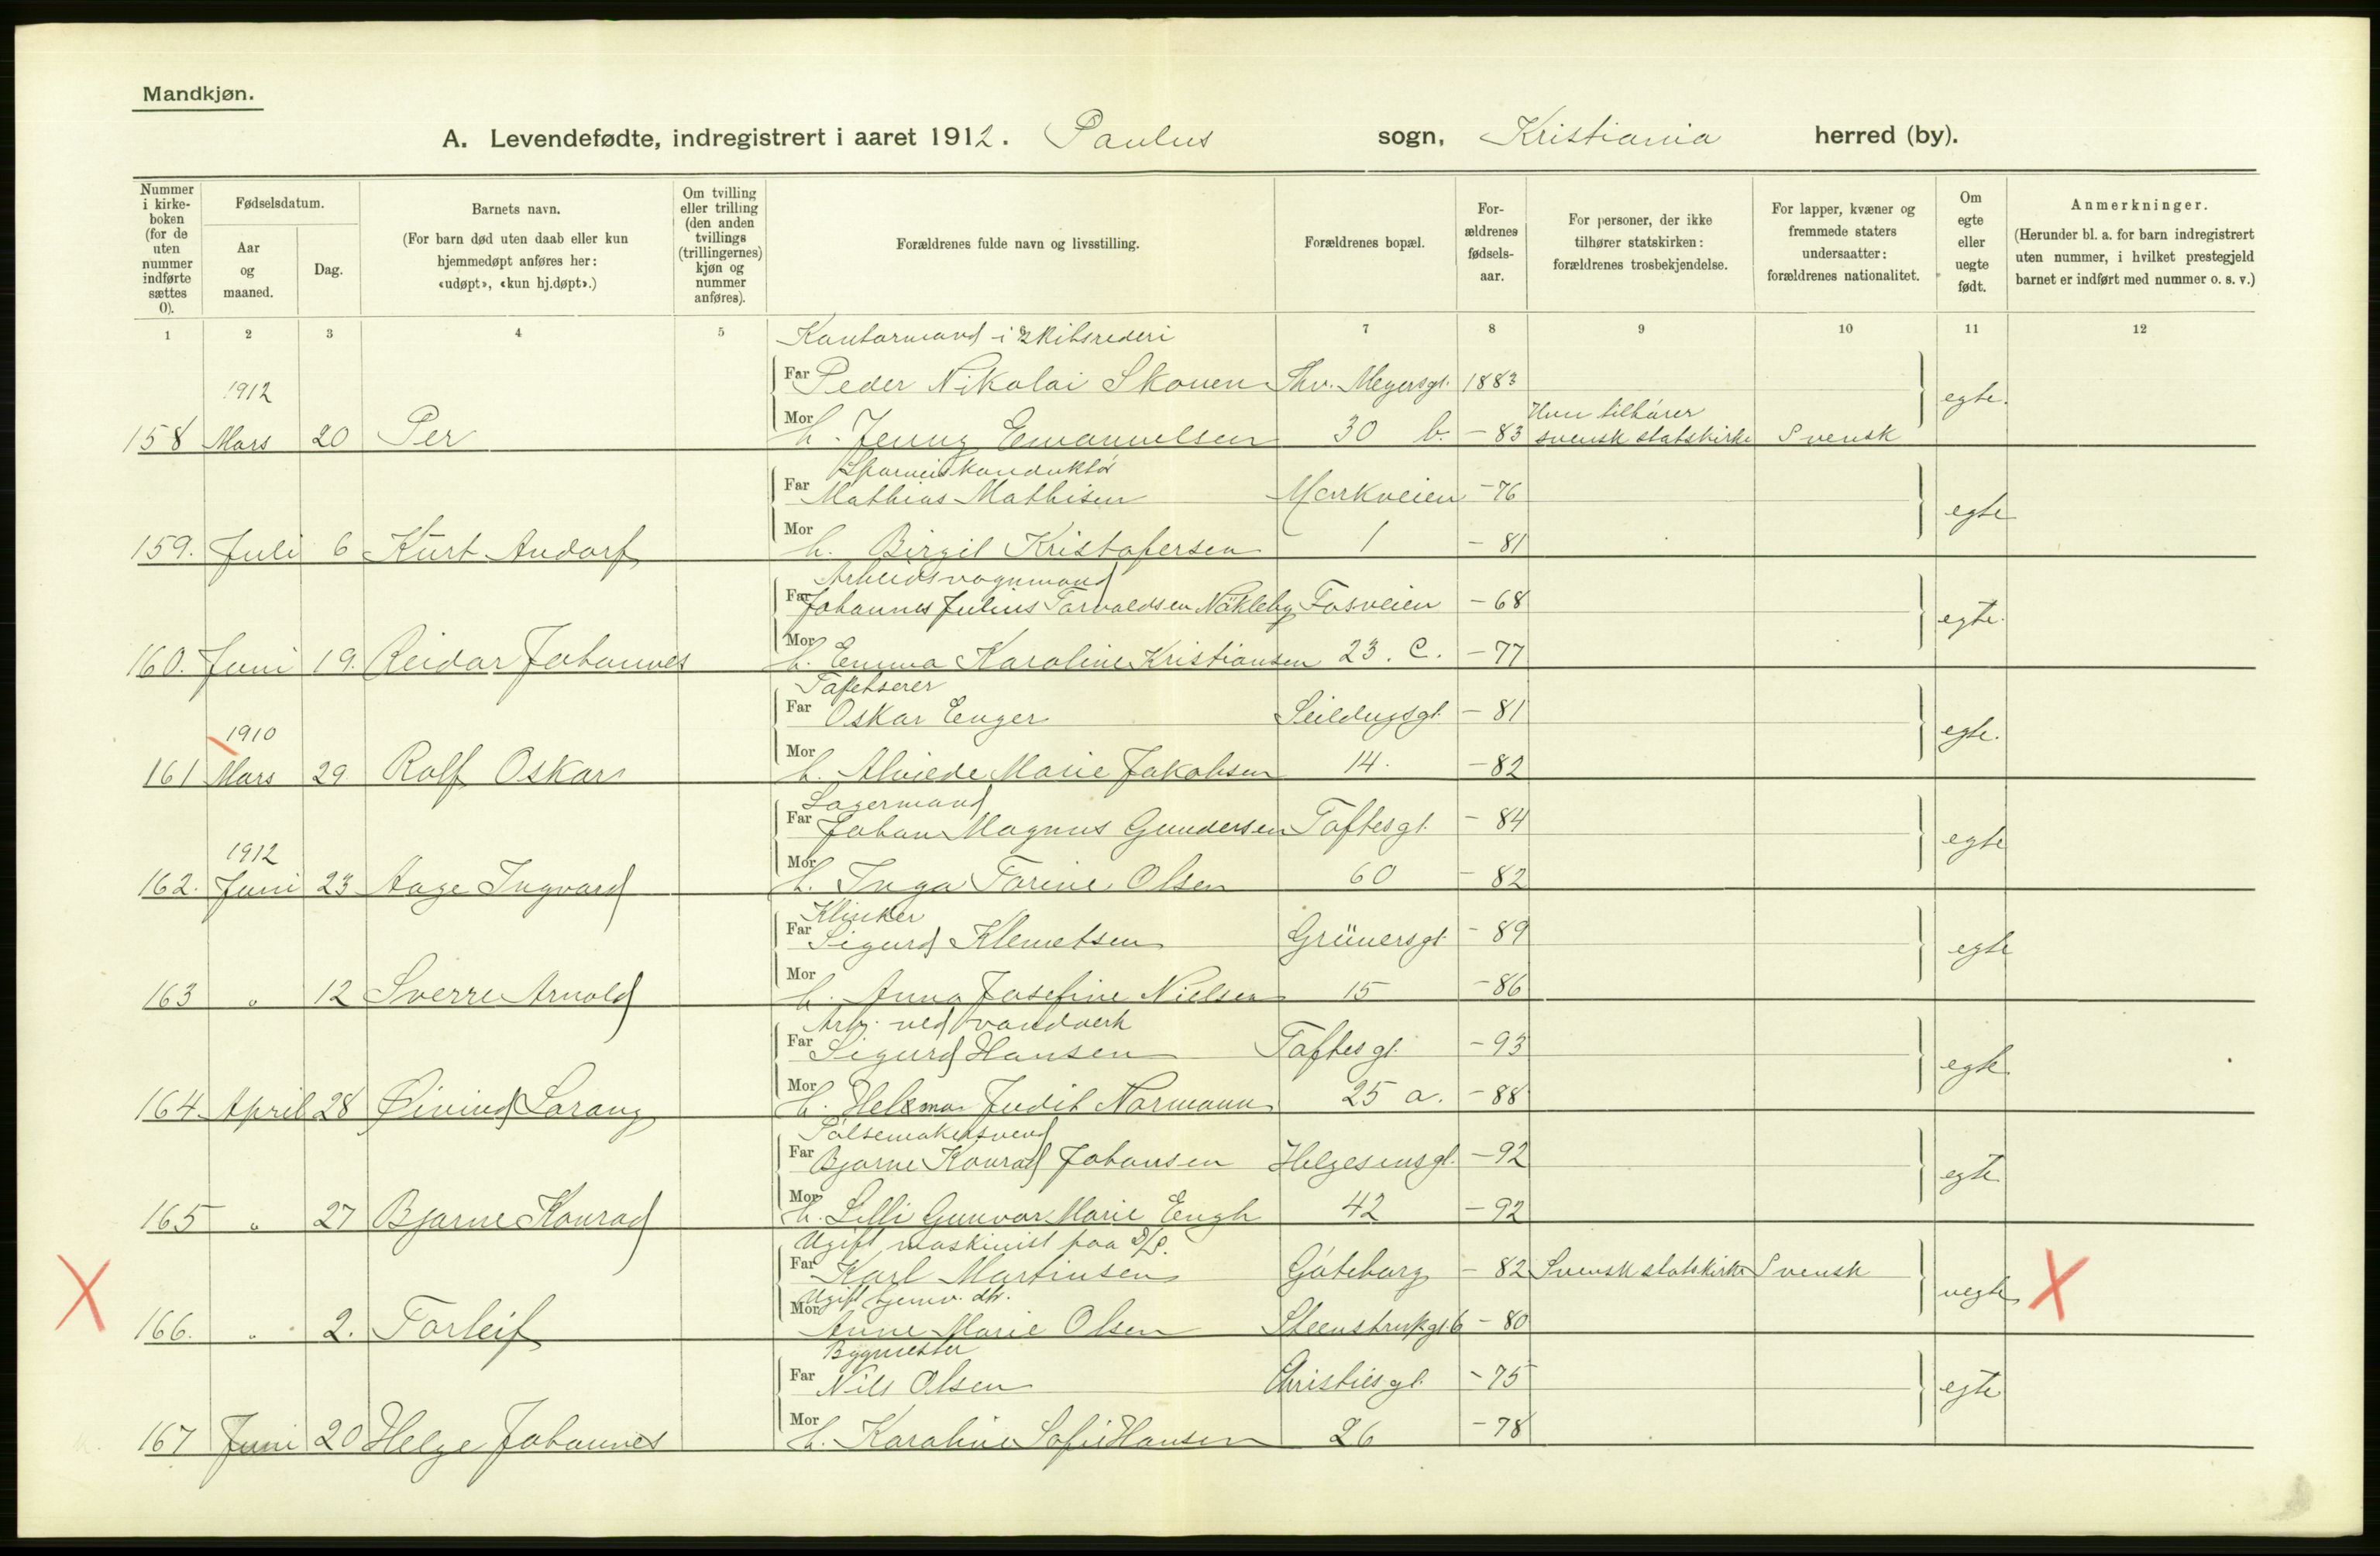 Mandkjøn.
A. Levendefødte, indregistrert i aaret 1912. Paulus sogn, Kristiania herred (by).
Nummer i kirkeboken (for de uten nummer indførte sættes 0).
Fødselsdatum.
Aar og maaned.
Dag.
Barnets navn.
(For barn død uten daab eller kun hjemmedøpt anføres her: «udøpt», «kun hj.døpt».)
Om tvilling eller trilling (den anden tvillings (trillingernes) kjøn og nummer anføres).
Forældrenes fulde navn og livsstilling.
Forældrenes bopæl.
Forældrenes fødselsaar.
For personer, der ikke tilhører statskirken: forældrenes trosbekjendelse.
For lapper, kvæner og fremmede staters undersaatter: forældrenes nationalitet.
Om egte eller uegte født.
Anmerkninger.
(Herunder bl. a. for barn indregistrert uten nummer, i hvilket prestegjeld barnet er indført med nummer o. s. v.)
1 2 3 4 5 7 8 9 10 11 12
Kontormand i skibsrederi
1912 Far Peder Nikolai Skouen Thv. Meyersgt. 1883 egte.
Hun tilhører
158 Mars 20 Per Mor h. Jenny Emanuelsen 30 b. -83 svensk statskirke Svensk
Sporveiskonduktør
Far Mathias Mathisen Markveien -76 egte
159. Juli 6 Kurt Andorf Mor h. Birgit Kristofersen 1 -81
Arbeidsvognmand
Far Johannes Julius Torvaldsen Nökleby Fosveien -68 egte.
160. Juni 19. Reidar Johannes Mor h. Emma Karoline Kristiansen 23. C. -77
Tapetserer
1910 Far Oskar Enger Seildugsgt. -81 egte.
161 Mars 29 Rolf Oskar Mor h. Alviede Marie Jakobsen 14. -82
Lagermand
1912 Far Johan Magnus Gundersen Toftesgt. -84 egte
162. Juni 23 Aage Ingvard Mor h. Inga Torine Olsen 60 -82
Klinker
Far Sigurd Klemetsen Grünersgt. -89 egte
163 " 12 Sverre Arnold Mor h. Anna Josefine Nielsen 15 -86
Arb. ved vandverk
Far Sigurd Hansen Toftesgt. -93 egte
164. April 28 Øivind Mor h. Judit Normann 25 a. -88
Pølsemakersvend
Far Bjarne Konrad Johansen Helgesensgt. -92 egte
165 " 27 Bjarne Konrad Mor h. Lilli Gunvor Marie Engh 42 -92
Ugift, maskinist paa D/S.
Far Karl Martinsen Göteborg -82 Svensk statskirke Svensk uegte
Ugift hjemv. dtr.
166. " 2. Torleif Mor Anne Marie Olsen Steenstrupgt. 6 -80
Bygmester
Far Nils Olsen Christiesgt. -75 egte
167 Juni 20 Helge Johannes Mor h. Karoline Sofie Hansen 26 -78